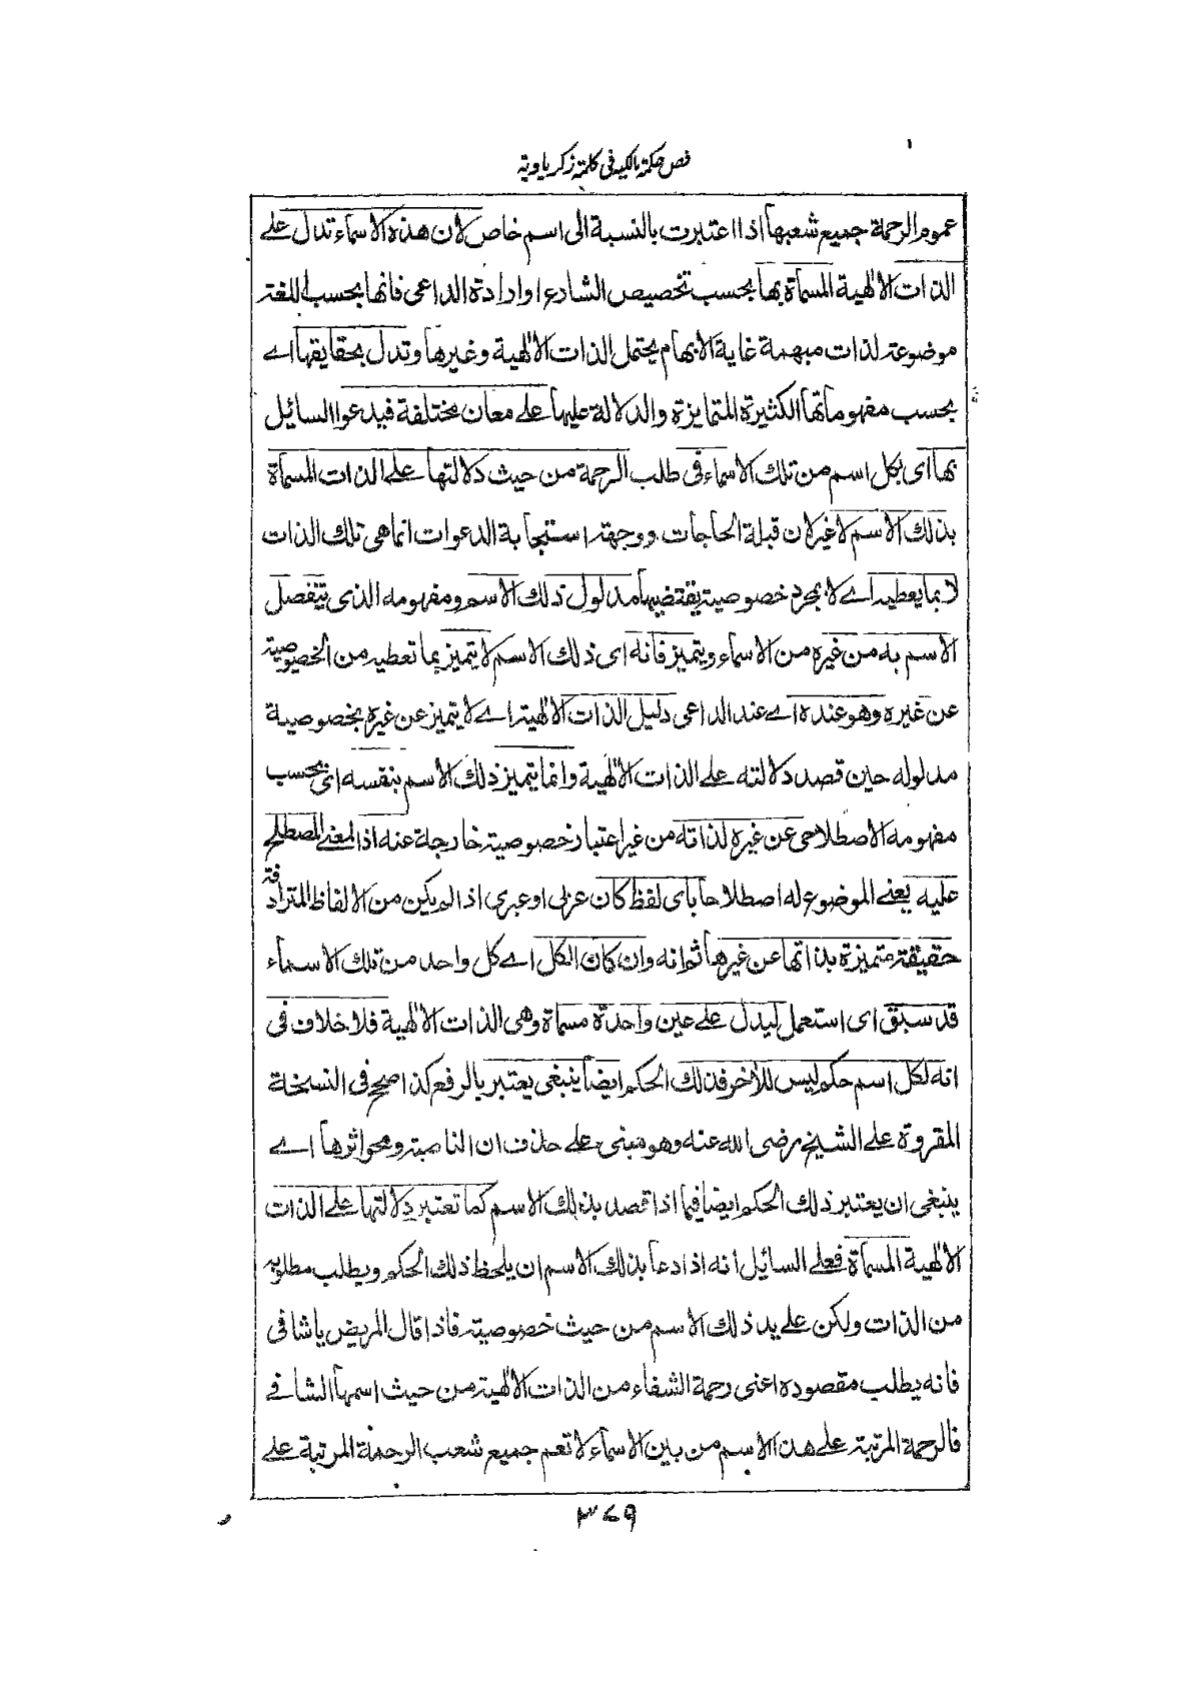 فص حكمة مالكيه فى كلمة زكرياوية
عموم الرحمة جميع شعبها اذا اعتبرت بالنسبة الى اسم خاص لان هذه الاسماء تدل علے
الذات الالٰهية المسماة بها بحسب تخصيص الشارع او ارادة الداعى فانها بحسب اللغة
موضوعة لذات مبهمة غاية الابهام يحتمل الذات الالٰهية وغيرها وتدل بحقايقها اے
بحسب مفهوماتها الكثيرة المتمايزة والدلالة عليها علے معان مختلفة فيدعوا السائيل
بها اى بكل اسم من تلك الاسماء فى طلب الرحمة من حيث دلالتها علے الذات المسماة
بذلك الاسم لا غير لان قبلة الحاجات ووجهة استنجابة الدعوات انما هى تلك الذات
لا بما يعطيه اے لا بمجرد خصوصية يقتضيها مدلول ذلك الاسم ومفهومه الذى يتفصل
الاسم به من غيره من الاسماء ويتميز فانه اى ذلك الاسم لا يتميز بما تعطيه من الخصوصية
عن غيره وهو عنده اے عند الداعى دليل الذات الالٰهية اے لا يتميز عن غيره بخصوصية
مدلوله حين قصد دلالته علے الذات الالٰهية وانما يتميز ذلك الاسم بنفسه اى بحسب
مفهومه الاصطلاحى عن غيره لذاته من غير اعتبار خصوصية خارجة عنه اذ المعنے المصطلح
عليه يعنے الموضوع له اصطلاحا باى لفظ كان عربى او عبرى اذا لم يكن من الالفاظ المترادفة
حقيقة متميزة بذاتها عن غيرها ثم انه وان كان الكل اے كل واحد من تلك الاسماء
قد سبق اى استعمل ليدل علے عين واحدة مسماة وهى الذات الالٰهية فلا خلاف فى
انه لكل اسم حكم ليس للاخر فذلك الحكم ايضا ينبغى يعتبر بالرفع كذا صحح فى النسخة
المقروة علے الشيخ رضى الله عنه وهو مبنى علے حذف ان الناصبة ومحو اثرها اے
ينبغى ان يعتبر ذلك الحكم ايضا فيما اذا قصد بذلك الاسم كما تعتبر دلالتها علے الذات
الالٰهية المسماة فعلے السائيل انه اذا دعا بذلك الاسم ان يلحظ ذلك الحكم ويطلب مطلوبه
من الذات ولكن علے يد ذلك الاسم من حيث خصوصيته فاذا قال المريض يا شافى
فانه يطلب مقصوده اعنى رحمة الشفاء من الذات الالٰهية من حيث اسمها الشافے
فالرحمة المرتبة علے هذا الاسم من بين الاسماء لا تعم جميع شعب الرحمة المرتبة علے
٣٤٩